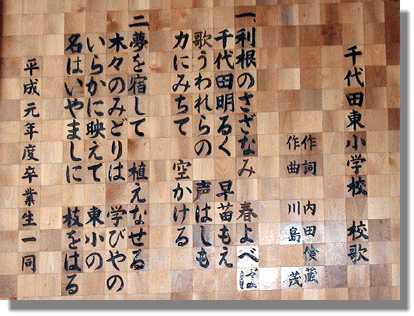 千代田東小学校 校歌
作詞 内田 俊蔵
作曲 川島 茂
一、利根のさざなみ 春よべば
千代田明るく 早苗もえ
歌うわれらの 声はしも
力にみちて 空かける
二 夢を宿して 植えなせる
木々のみどりは 学びやの
いらかに映えて 東小の
名はいやましに 枝をはる
平成元年度卒業生一同